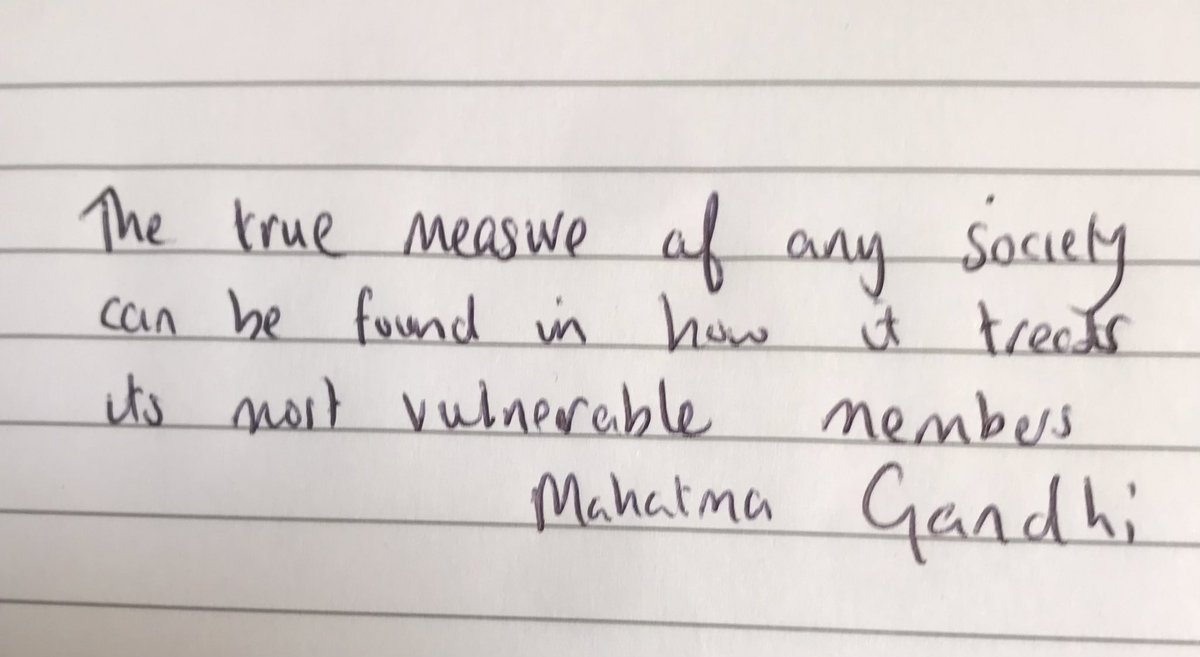 The true measure of any society
can be found in how it treats
its most vulnerable members
Mahatma Gandhi